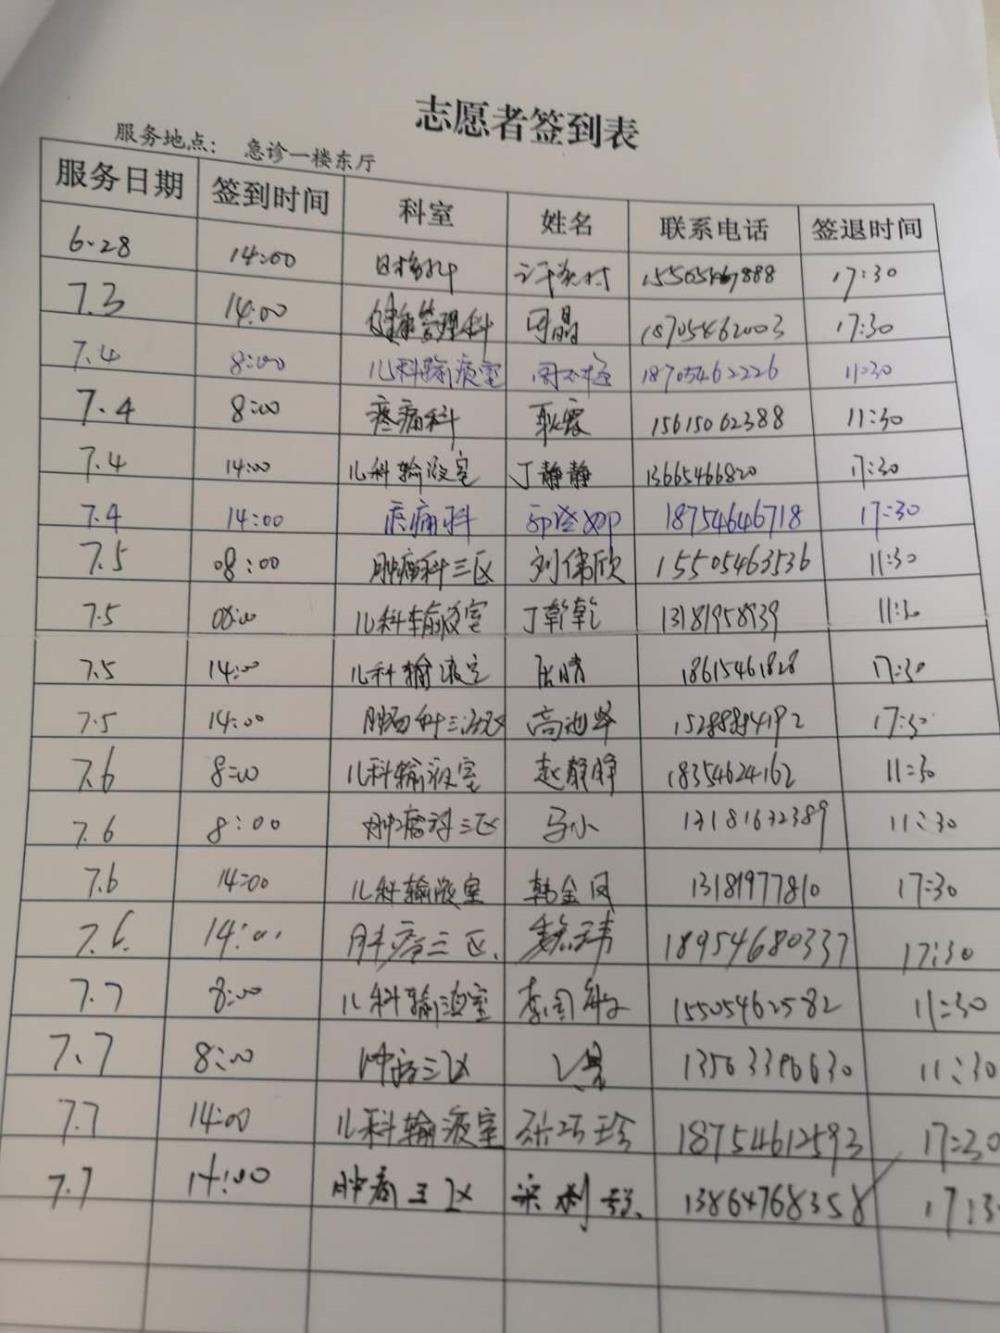 志愿者签到表
服务地点： 急诊一楼东厅
服务日期 签到时间 科室 姓名 联系电话 签退时间
6.28 14:00 17:30
7.3 14:00 健康管理科 司晶 18705462003 17:30
7.4 8:00 儿科输液室 18705462226 11:30
7.4 8:00 疼痛科 耿霞 15615062388 11:30
7.4 14:00 儿科输液室 丁静静 13665466820 17:30
7.4 14:00 疼痛科 18754646718 17:30
7.5 08:00 肿瘤科三区 刘伟欣 15505463536 11:30
7.5 08:00 儿科输液室 丁乾乾 13181958939 11:30
7.5 14:00 儿科输液室 张晴 18615461828 17:30
7.5 14:00 15288894192 17:30
7.6 8:00 儿科输液室 赵静静 18354624162 11:30
7.6 8:00 肿瘤科三区 马小 13181632389 11:30
7.6 14:00 儿科输液室 韩金凤 13181977810 17:30
7.6 14:00 肿瘤三区 18954680337 17:30
7.7 8:00 儿科输液室 15505462582 11:30
7.7 8:00 肿瘤三区 11:30
7.7 14:00 儿科输液室 孙巧珍 18754612593 17:30
7.7 14:00 肿瘤三区 13864768358 17:3